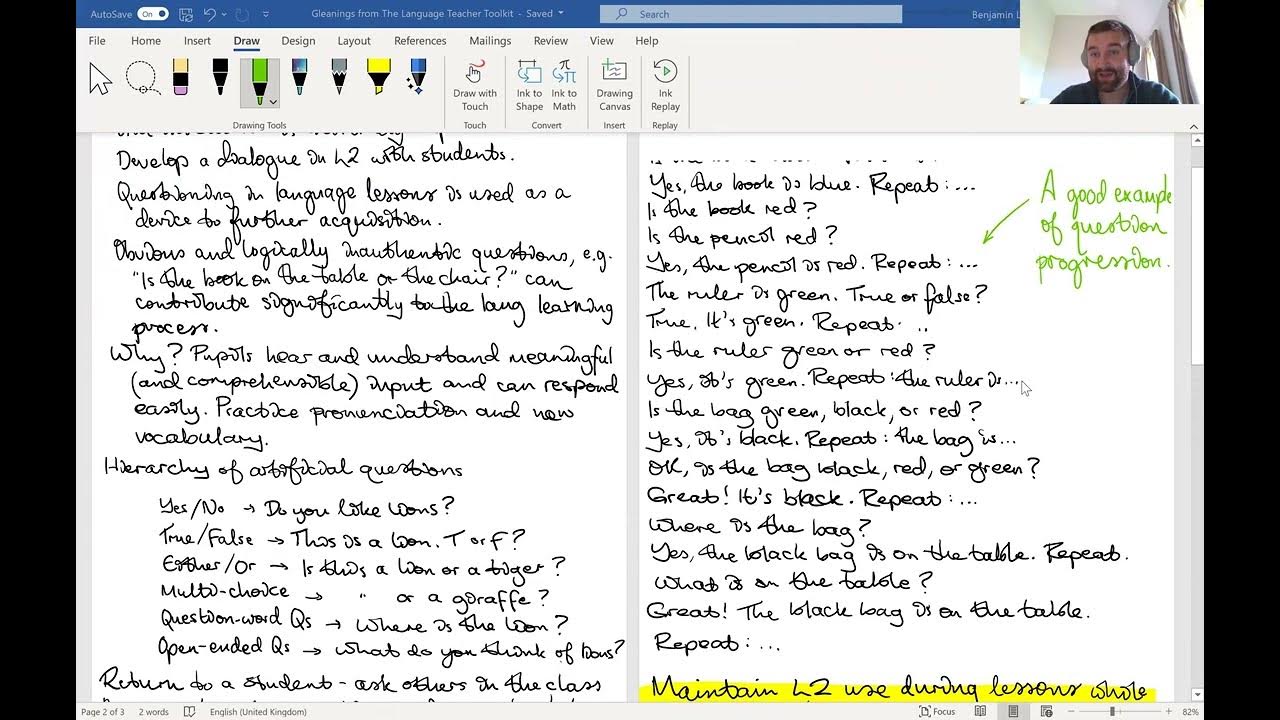 AutoSave On
Gleanings from The Language Teacher Toolkit - Saved
Search
Benjamin L
File Home Insert Draw Design Layout References Mailings Review View Help
Draw with Touch
Ink to Shape
Ink to Math
Drawing Canvas
Ink Replay
Drawing Tools
Touch
Convert
Insert
Replay
Develop a dialogue in L2 with students.
Questioning in language lessons is used as a
device to further acquisition.
Obvious and logically inauthentic questions, e.g.
"Is the book on the table or the chair?" can
contribute significantly to the lang learning
process.
Why? Pupils hear and understand meaningful
(and comprehensible) input and can respond
easily. Practice pronunciation and new
vocabulary.
Hierarchy of artificial questions
Yes/No → Do you like lions?
True/False → This is a lion. T or F?
Either/Or → Is this a lion or a tiger?
Multi-choice → " or a giraffe?
Question-word Qs → Where is the lion?
Open-ended Qs → What do you think of lions?
Return to a student - ask others in the class
Yes, the book is blue. Repeat: ...
Is the book red?
Is the pencil red?
Yes, the pencil is red. Repeat: ...
The ruler is green. True or false?
True. It's green. Repeat. ..
Is the ruler green or red?
Yes, it's green. Repeat: the ruler is...
Is the bag green, black, or red?
Yes, it's black. Repeat: the bag is...
OK, is the bag black, red, or green?
Great! It's black. Repeat: ...
Where is the bag?
Yes, the black bag is on the table. Repeat.
What is on the table?
Great! The black bag is on the table.
Repeat: ...
Maintain L2 use during lessons whole
A good example
of question
progression.
Page 2 of 3
2 words
English (United Kingdom)
Focus
82%